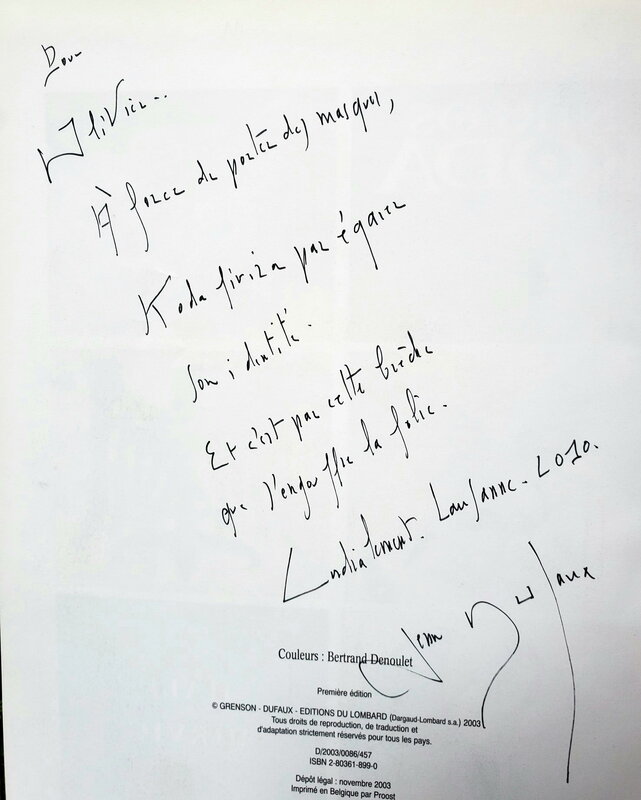 Pour
Olivier...
À force de porter des masques,
Koda finira par égarer
son identité.
Et c'est par cette brèche
que s'engouffre la folie.
Cordialement. Lausanne. 2010.
Jean Dufaux
Couleurs : Bertrand Denoulet
Première édition
© GRENSON - DUFAUX - EDITIONS DU LOMBARD (Dargaud-Lombard s.a.) 2003
Tous droits de reproduction, de traduction et
d'adaptation strictement réservés pour tous les pays.
D/2003/0086/457
ISBN 2-80361-899-0
Dépôt légal : novembre 2003
Imprimé en Belgique par Proost